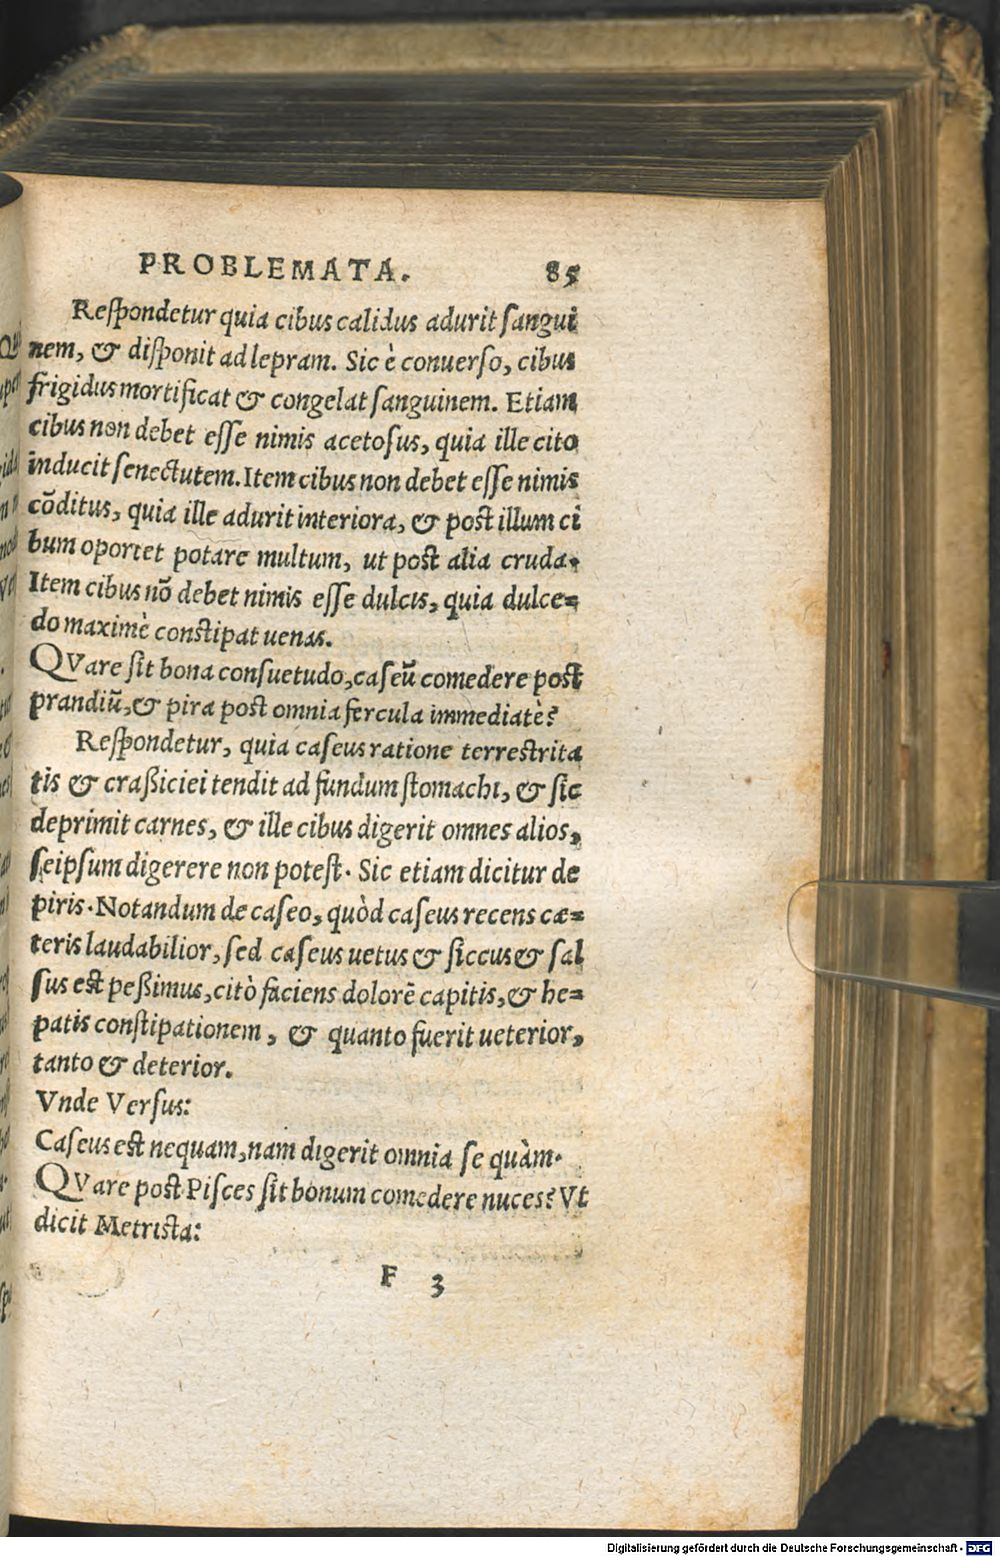 PROBLEMATA. 85
Reſpondetur quia cibus calidus adurit ſangui
nem, & diſponit ad lepram. Sic è conuerſo, cibus
frigidus mortificat & congelat ſanguinem. Etiam
cibus non debet eſſe nimis acetoſus, quia ille cito
inducit ſenectutem. Item cibus non debet eſſe nimis
cōditus, quia ille adurit interiora, & poſt illum ci
bum oportet potare multum, ut poſt alia cruda.
Item cibus nō debet nimis eſſe dulcis, quia dulce=
do maximè conſtipat uenas.
QVare ſit bona conſuetudo, caſeū comedere poſt
prandiū, & pira poſt omnia fercula immediatè?
Reſpondetur, quia caſeus ratione terreſtrita
tis & craßiciei tendit ad fundum ſtomachi, & ſic
deprimit carnes, & ille cibus digerit omnes alios,
ſeipſum digerere non poteſt. Sic etiam dicitur de
piris. Notandum de caſeo, quòd caſeus recens cæ=
teris laudabilior, ſed caſeus uetus & ſiccus & ſal
ſus eſt peßimus, citò faciens dolorē capitis, & he=
patis conſtipationem, & quanto fuerit ueterior,
tanto & deterior.
Vnde Verſus:
Caſeus eſt nequam, nam digerit omnia ſe quàm.
QVare poſt Piſces ſit bonum comedere nuces? Vt
dicit Metriſta:
F 3
Digitalisierung gefördert durch die Deutsche Forschungsgemeinschaft - DFG